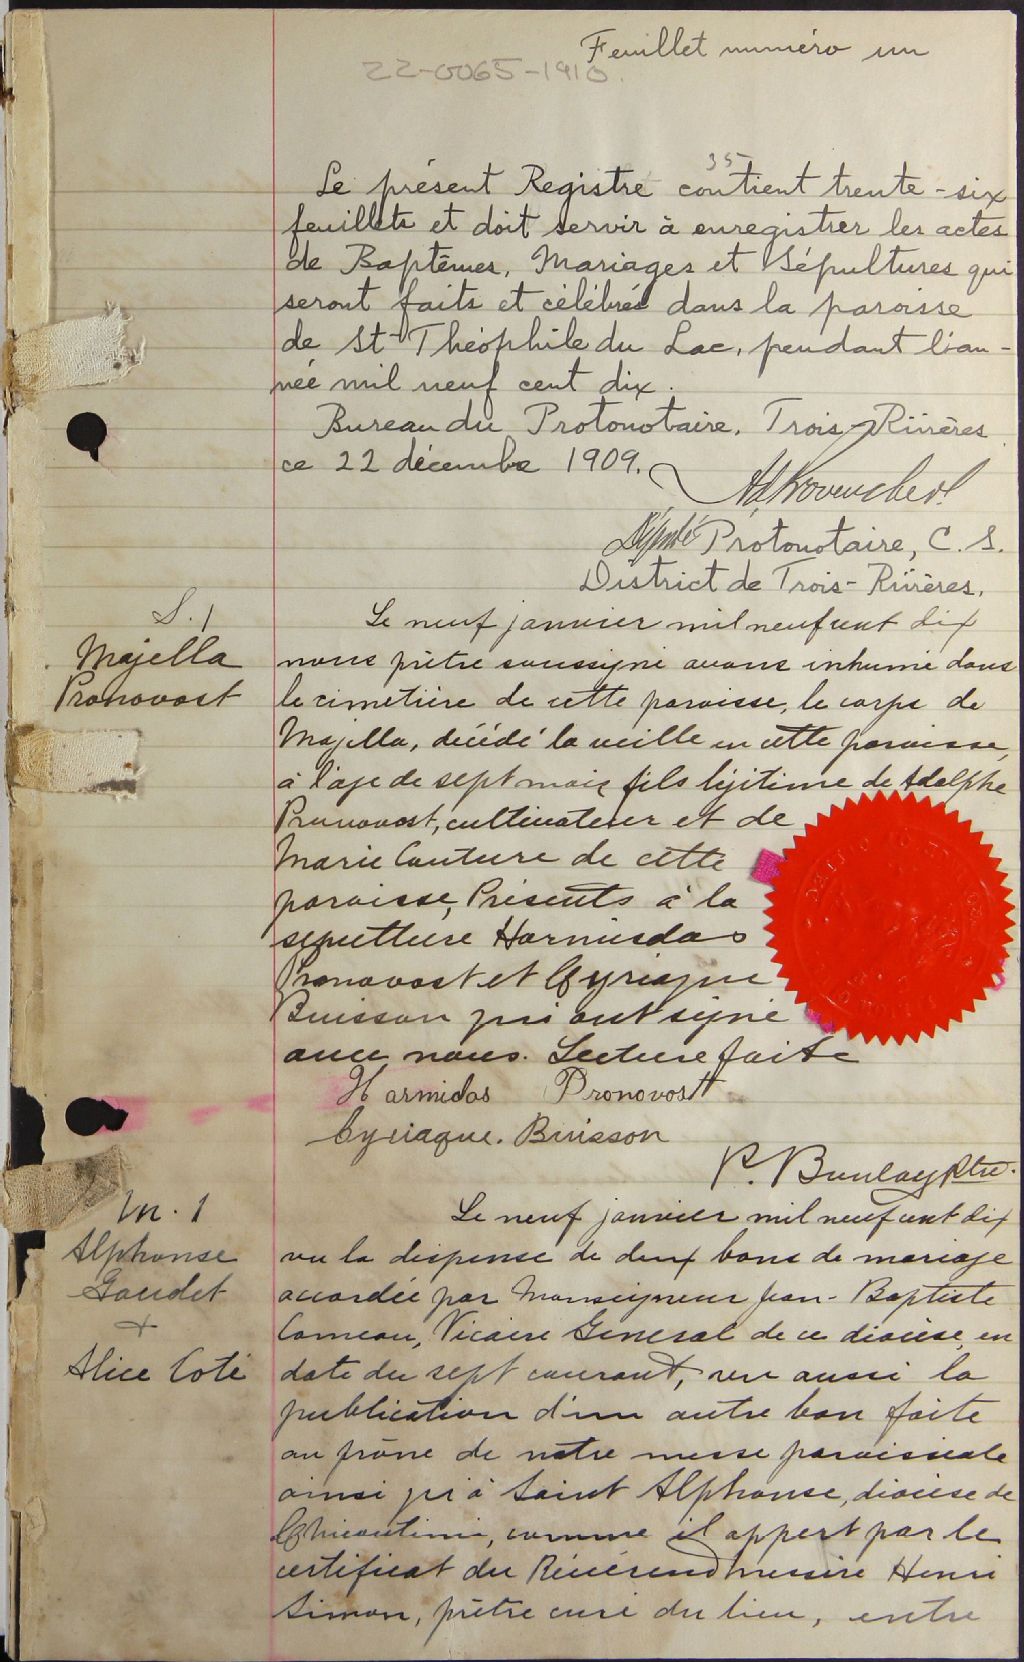 Feuillet numéro un
22-0065-1910.
35
Le présent Registre contient trente-six
feuillets et doit servir à enregistrer les actes
de Baptêmes, Mariages et Sépultures qui
seront faits et célébrés dans la paroisse
de St-Théophile du Lac, pendant l'an-
née mil neuf cent dix.
Bureau du Protonotaire, Trois-Rivières
ce 22 décembre 1909.
Ad. Provencher
Député Protonotaire, C. S.
District de Trois-Rivières.
S. 1
Majella
Pronovost
Le neuf janvier mil neuf cent dix
nous prêtre soussigné avons inhumé dans
le cimetière de cette paroisse, le corps de
Majella, décédé la veille en cette paroisse,
à l'age de sept mois fils légitime de Adolphe
Pronovost, cultivateur et de
Marie Couture de cette
paroisse, Présents à la
sépulture Hormisdas
Pronovost et Cyriaque
Buisson qui ont signé
avec nous. Lecture faite
Harmidas Pronovost
Cyriaque. Buisson
P. Boulay Ptre.
M. 1
Alphonse
Gaudet
+
Alice Coté
Le neuf janvier mil neuf cent dix
vu la dispense de deux bans de mariage
accordée par Monseigneur Jean-Baptiste
Comeau, Vicaire General de ce diocèse, en
date du sept courant, vu aussi la
publication d'un autre ban faite
au prône de notre messe paroissiale
ainsi qu'à Saint Alphonse, diocèse de
Chicoutimi, comme il appert par le
certificat du Révérend messire Henri
Simon, prêtre curé du lieu, entre